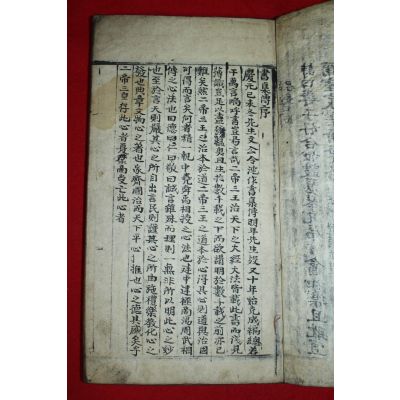 書集傳序
慶元己未冬先生文公令沈作書集傳明年先生沒又十年始克成編總若
干萬言嗚呼書豈易言哉二帝三王治天下之大經大法皆載此書而淺見
薄識豈足以盡發蘊奧且生於數千載之下而欲講明於數千載之前亦已
難矣然二帝三王之治本於道二帝三王之道本於心得其心則道與治固
可得而言矣何者精一執中堯舜禹相授之心法也建中建極商湯周武相
傳之心法也曰德曰仁曰敬曰誠言雖殊而理則一無非所以明此心之妙
也至於言天則嚴其心之所自出言民則謹其心之所由施禮樂敎化心之
發也典章文物心之著也家齊國治而天下平心之推也心之德其盛矣乎
二帝三王存此心者也夏桀商受亡此心者